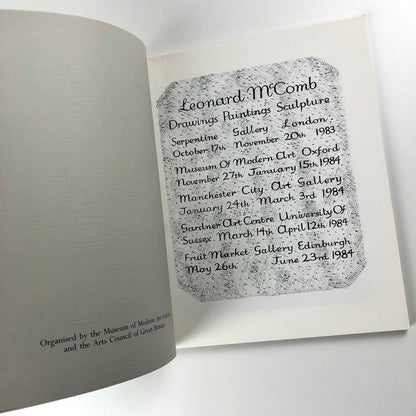 Organised by the Museum of Modern Art Oxford
and the Arts Council of Great Britain
Leonard McComb
Drawings Paintings Sculpture
Serpentine Gallery London
October 17th November 20th 1983
Museum Of Modern Art Oxford
November 27th January 15th 1984
Manchester City Art Gallery
January 24th March 3rd 1984
Gardner Art Centre University Of
Sussex March 14th April 12th 1984
Fruit Market Gallery Edinburgh
May 26th June 23rd 1984